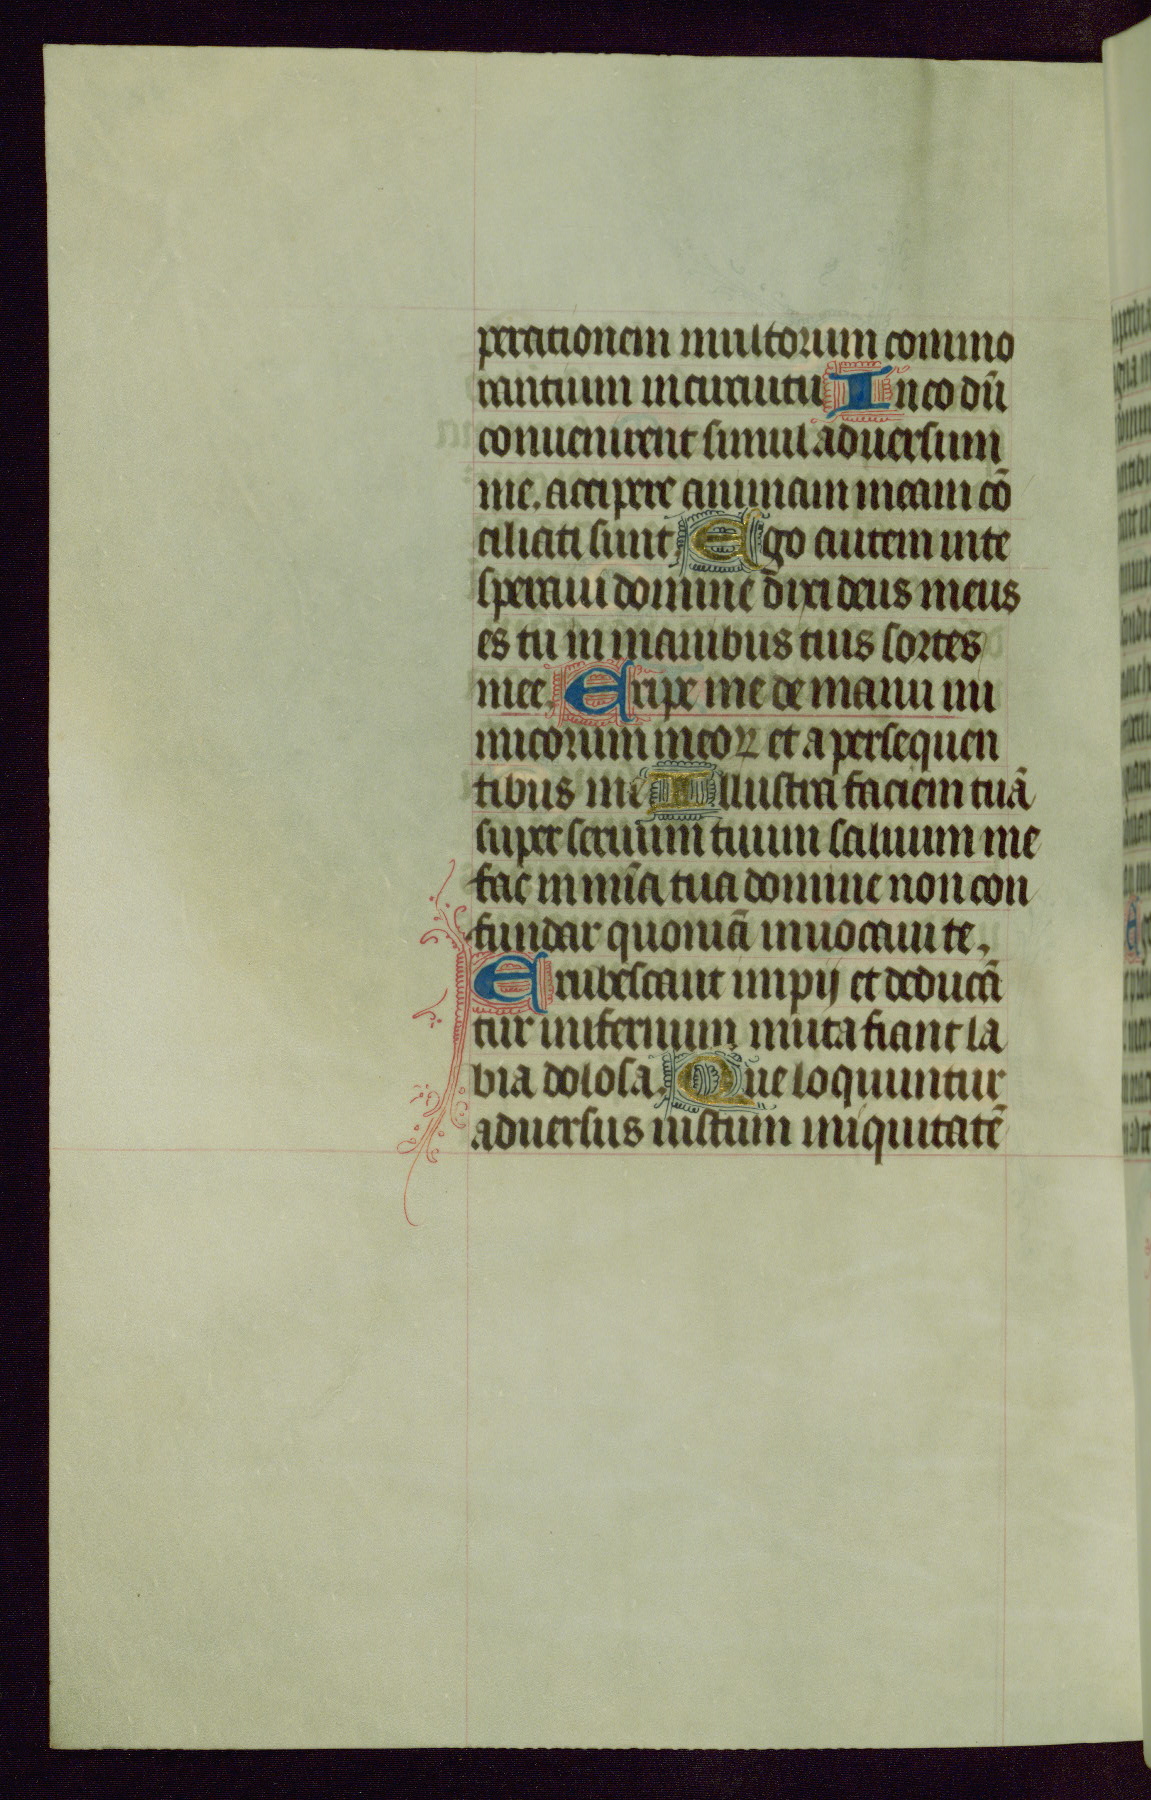 perationem multorum commo
rantium in circuitu In eo dū
conuenirent simul aduersum
me. accipere animam meam cō
ciliati sunt. Ego autem in te
speraui domine dixi deus meus
es tu in manibus tuis sortes
mee. Eripe me de manu ini
micorum meoꝝ et a persequen
tibus me Illustra faciem tuā
super seruum tuum saluum me
fac in mīa tua domine non con
fundar quoniā inuocaui te.
Erubescant impij et deducā
tur in fernum muta fiant la
bia dolosa. Que loquuntur
aduersus iustum iniquitatē